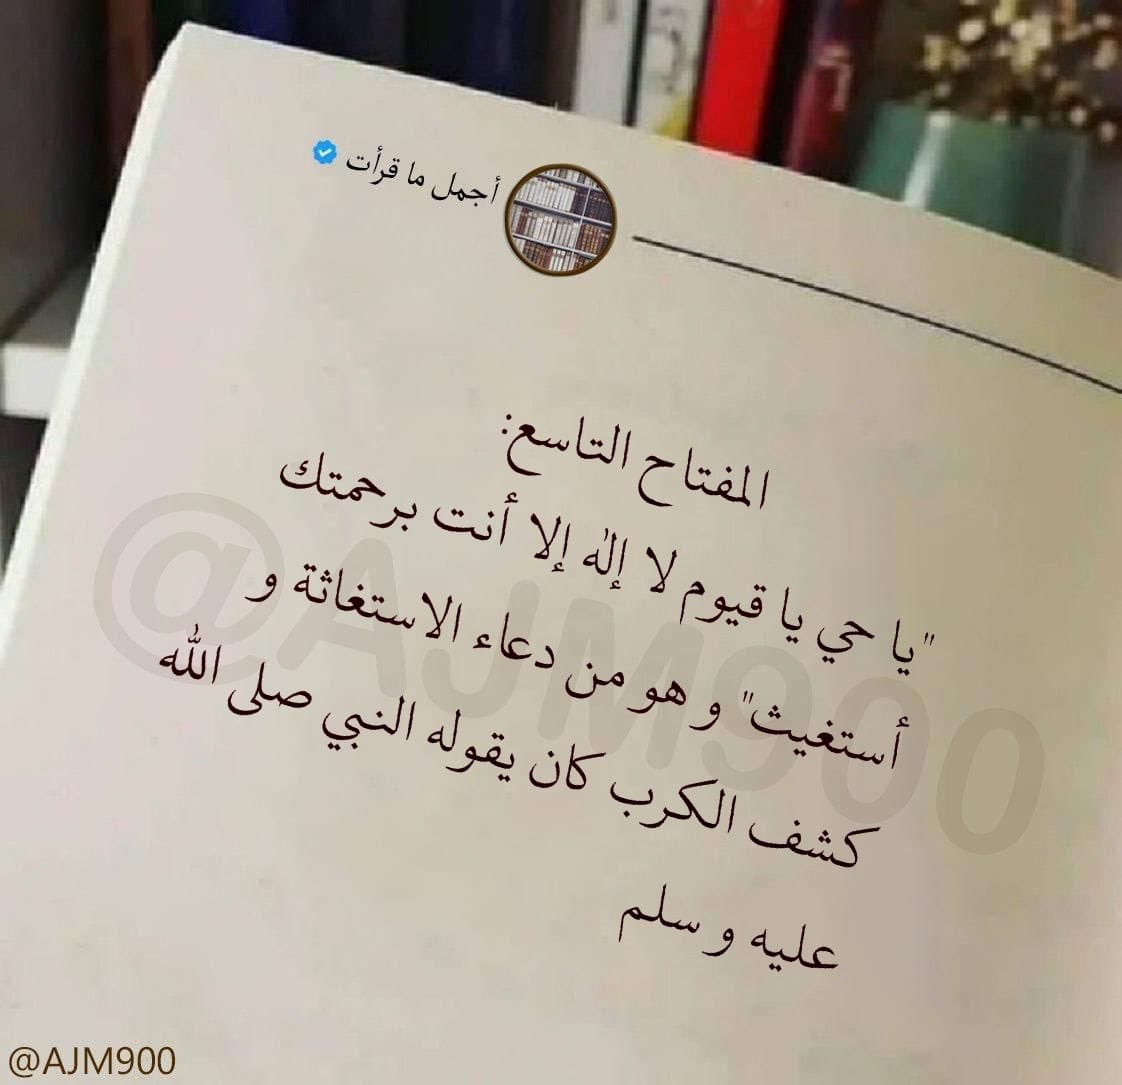 أجمل ما قرأت
المفتاح التاسع:
"يا حي يا قيوم لا إلٰه إلا أنت برحمتك
أستغيث" و هو من دعاء الاستغاثة و
كشف الكرب كان يقوله النبي صلى الله
عليه و سلم
@AJM900
@AJM900